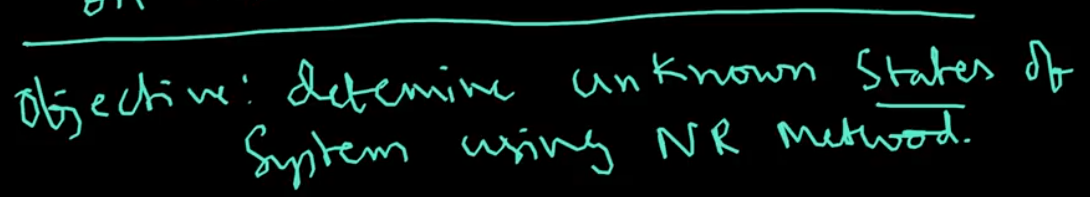 Objective: detemine unknown states of
System using NR method.